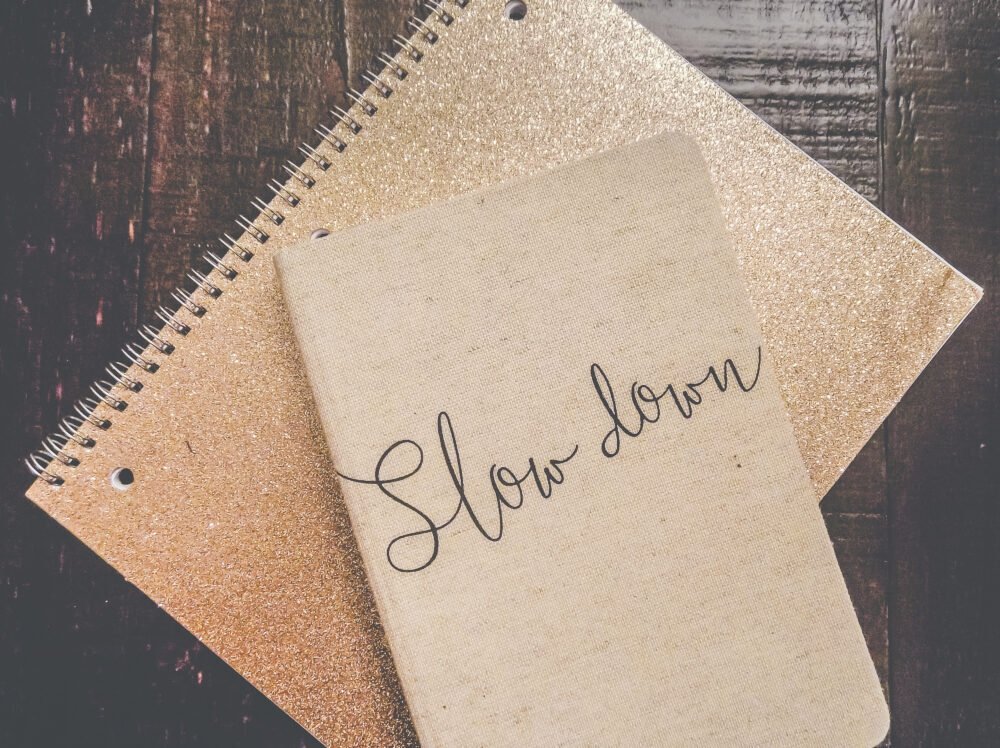 Slow down